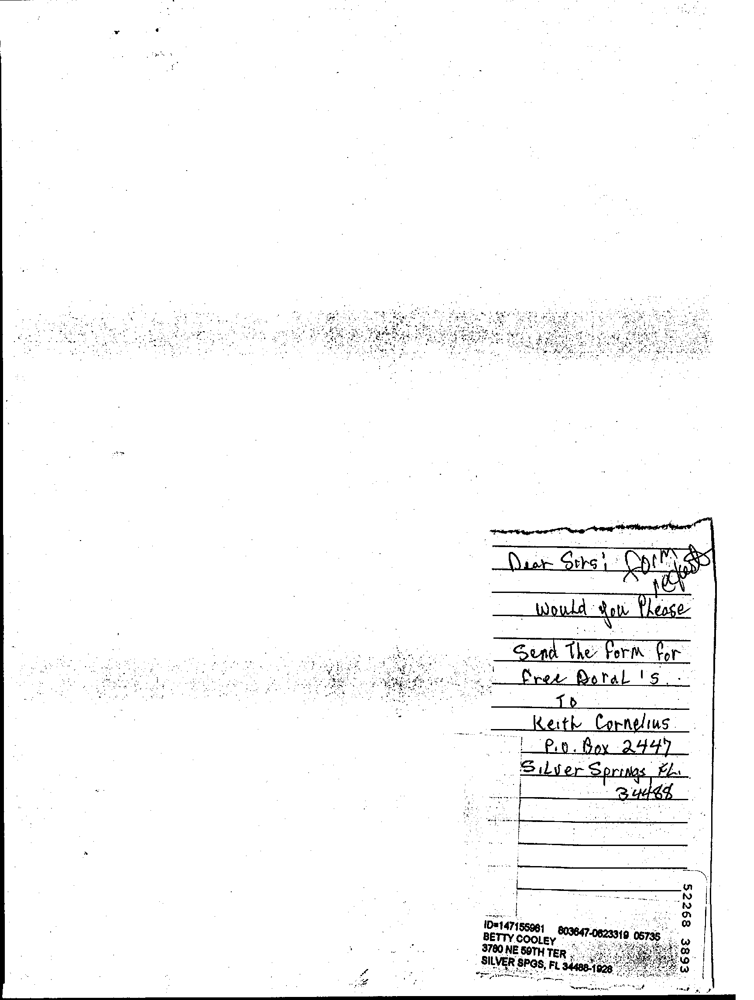 Dear Sirs; form
request
Would you Please
Send The form for
free Doral's.
To
Keith Cornelius
P.O. Box 2447
Silver Springs FL.
34488
52268 3893
ID=147155981 803647-0623319 05735
BETTY COOLEY
3780 NE 59TH TER
SILVER SPGS, FL 34488-1928